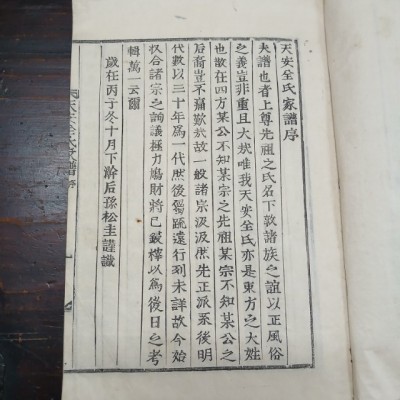 天安全氏家譜序
夫譜也者上尊先祖之氏名下敦諸族之誼以正風俗
之義豈非重且大哉唯我天安全氏亦是東方之大姓
也散在四方某公不知某宗之先祖某宗不知某公之
后裔豈不痛歎哉故一般諸宗汲汲然先正派系後明
代數以三十年爲一代然後獨跣遠行到未詳故今始
収合諸宗之詢議極力鳩財將已鋟梓以爲後日之考
輯萬一云爾
歲在丙子冬十月下澣后孫松圭謹識
天安全氏家譜 序